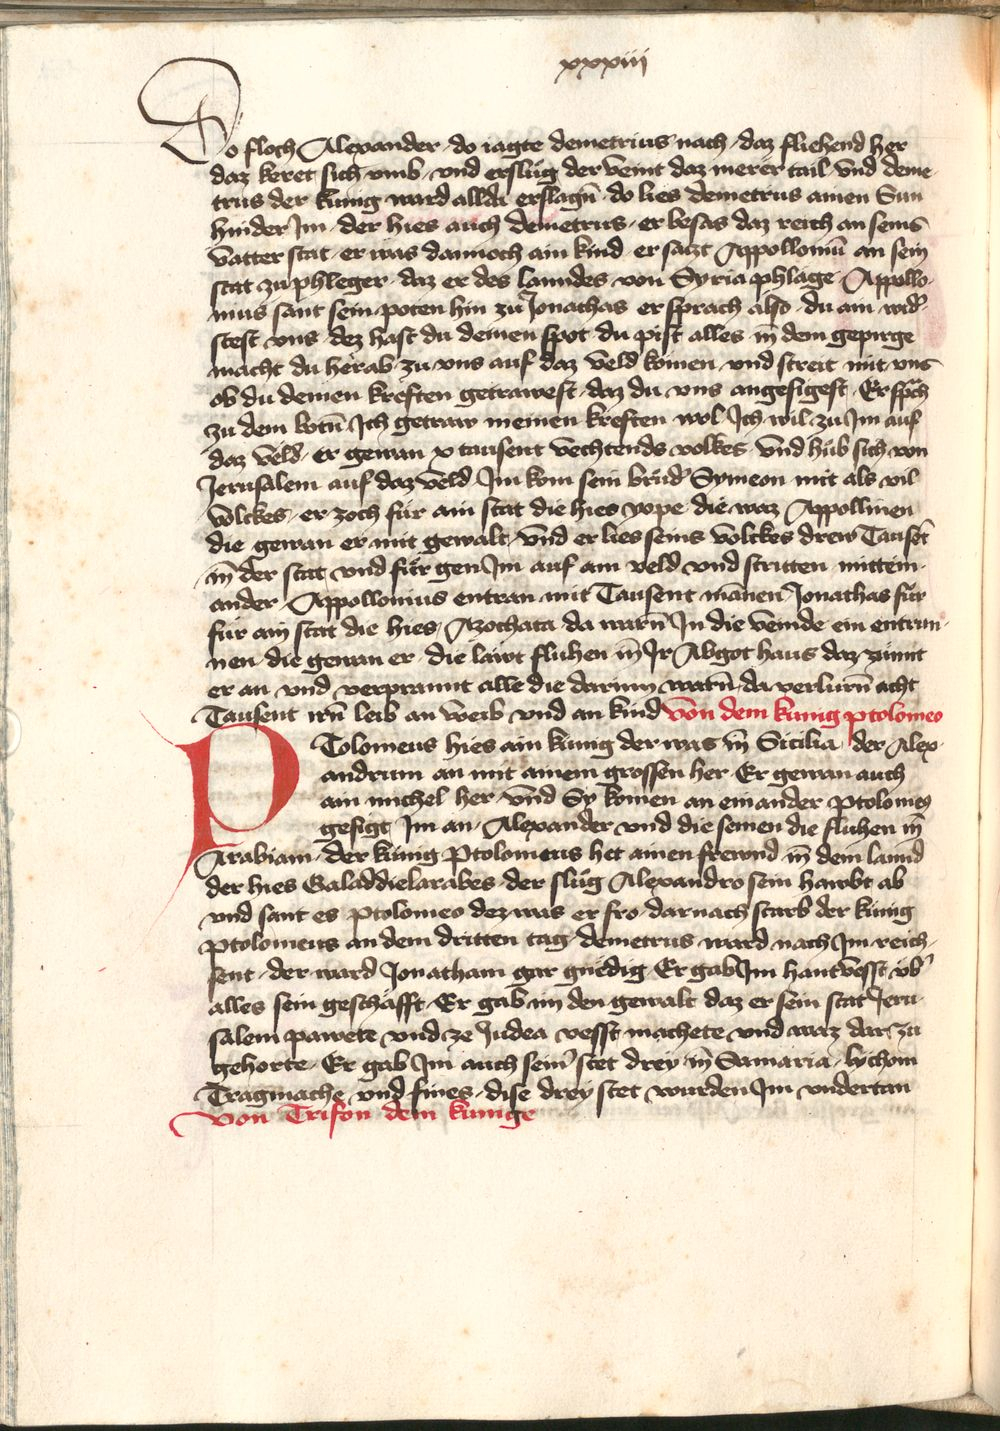 xxxiii
Do floch Alexander · do iagte demetrius nach · daz fliehend her
daz keret sich vmb · vnd erslug der veint daz merer tail vnd deme
trus der kunig ward allda erslagn̄ · do lies demetrus ainen Sun
hinder Im · der hies auch demetrus · er besas daz reich an seins
vatter stat · er was dannoch ain kind er satzt Appolloniū an sein
stat zu phleger · daz er des lanndes von Syria phlage · Appollo
nius sant sein poten hin zu Jonathas er sprach also · du ain wid̄
stest vns · dez hast du deinen spot du pist alles in̄ dem gepirge
macht du herab zu vns auf daz veld komen vnd streit mit vns
ob du deinen kreften getrawest daz du vns angesigest · Er spch
zu dem botn̄ Ich getraw meinen kreften wol Ich wil zu Im auf
daz veld · er gewan x tausent vechtends volkes · vnd hub sich von
Jerusalem auf daz veld Im kom sein brud̄ Symeon mit als vil
volckes · er zoch fur ain stat die hies yope · die waz Appollinen
die gewan er mit gewalt · vnd er lies seins volckes drew Tausēt
in̄ der stat vnd fur gen Im auf ain veld vnd stritten mittein
ander · Appollonius entran mit Tausent mānen Jonathas fur
fur ain stat die hies · Azochata · da warn̄ In die veinde ein entrun
nen · die gewan er · die láwt fluhen in̄ Ir Abgot haus daz zunnt
er an vnd verprannt alle die darinn warn̄ · da verlurn̄ acht
Tausent irn̄ leib an weib vnd an kind Von dem kunig ptolomeo
PTolomeus hies ain kung der was in̄ Sicilia der Alex
andrum an mit ainem grossen her · Er gewan auch
ain michel her · vnd Sy komen an ein ander ptolomeus
gesigt Im an · Alexander vnd die seinen die fluhen in̄
Arabiam · der kunig Ptolomeus het ainen frewnd in̄ dem lannd
der hies Galaddielarabes · der slug Alexandro sein hawbt ab
vnd sant es ptolomeo dez was er fro darnach starb der kunig
ptolomeus an dem dritten tag · demetrus ward nach Im reich
sent · der ward Jonatham gar gnedig Er gab Im hantvesst vb̄
alles sein geschäfft · Er gab im den gewalt daz er sein stat Jeru
salem pawete vnd ze Judea vesst machete vnd waz dar zu
gehorte · Er gab Im auch sein̄ stet drey in̄ Samaria · lychom
Tragmache vnd fines · dise drey stet wurden Im vndertan
Von Trifon dem kunige